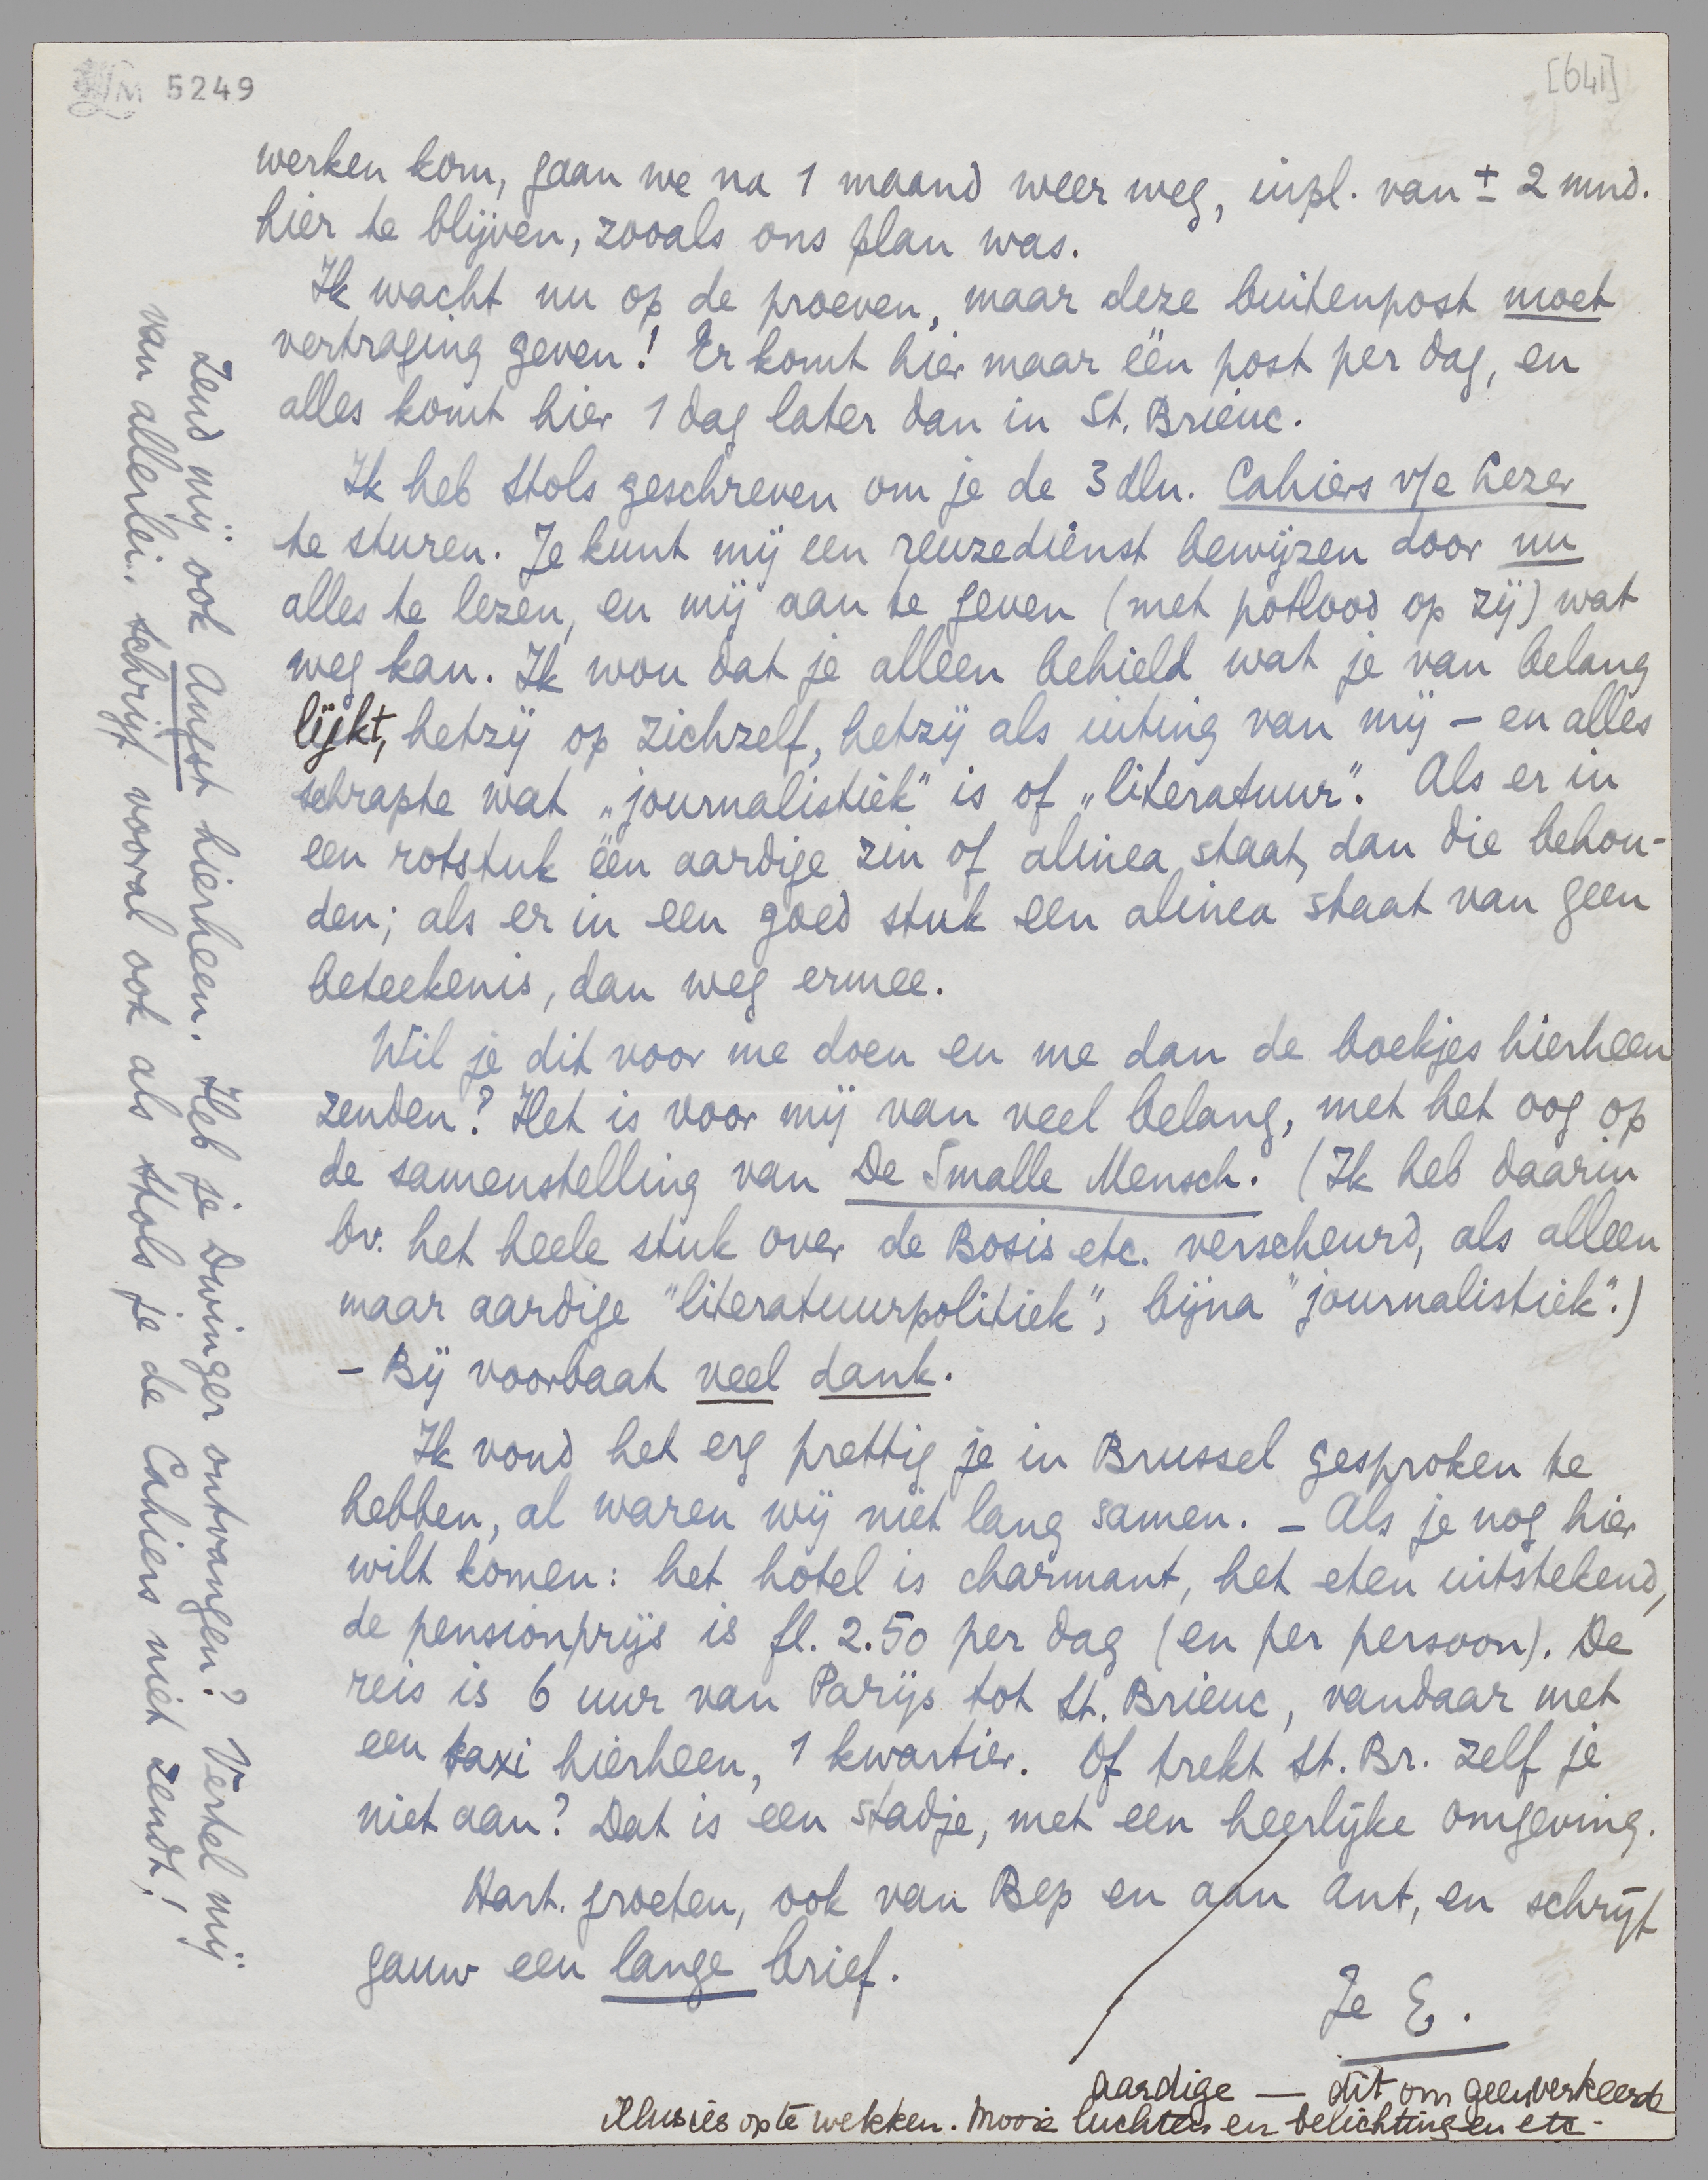 LM 5249
[641]
werken kom, gaan we na 1 maand weer weg, inpl. van ± 2 mnd.
hier te blijven, zooals ons plan was.
Ik wacht nu op de proeven, maar deze buitenpost moet
vertraging geven! Er komt hier maar één post per dag, en
alles komt hier 1 dag later dan in St. Brieuc.
Ik heb Stols geschreven om je de 3 dln. Cahiers v/e Lezer
te sturen. Je kunt mij een reuzedienst bewijzen door nu
alles te lezen, en mij aan te geven (met potlood op zij) wat
weg kan. Ik wou dat je alleen behield wat je van belang
lijkt, hetzij op zichzelf, hetzij als uiting van mij – en alles
schrapte wat „journalistiek" is of „literatuur". Als er in
een rotstuk één aardige zin of alinea staat, dan die behou-
den; als er in een goed stuk een alinea staat van geen
beteekenis, dan weg ermee.
Wil je dit voor me doen en me dan de boekjes hierheen
zenden? Het is voor mij van veel belang, met het oog op
de samenstelling van De Smalle Mensch. (Ik heb daarin
bv. het heele stuk over de Bosis etc. verscheurd, als alleen
maar aardige "literatuurpolitiek", bijna "journalistiek".)
– Bij voorbaat veel dank.
Ik vond het erg prettig je in Brussel gesproken te
hebben, al waren wij niet lang samen. – Als je nog hier
wilt komen: het hotel is charmant, het eten uitstekend,
de pensionprijs is fl. 2.50 per dag (en per persoon). De
reis is 6 uur van Parijs tot St. Brieuc, vandaar met
een taxi hierheen, 1 kwartier. Of trekt St. Br. zelf je
niet aan? Dat is een stadje, met een heerlijke omgeving.
Hart. groeten, ook van Bep en aan Ant, en schrijf
gauw een lange brief.
Je E.
aardige — dit om geen verkeerde
illusies op te wekken. Mooie luchten en belichtingen etc.
Zend mij ook Angst hierheen. Heb je Dwinger ontvangen? Vertel mij
van allerlei. Schrijf vooral ook als Stols je de Cahiers niet zendt!